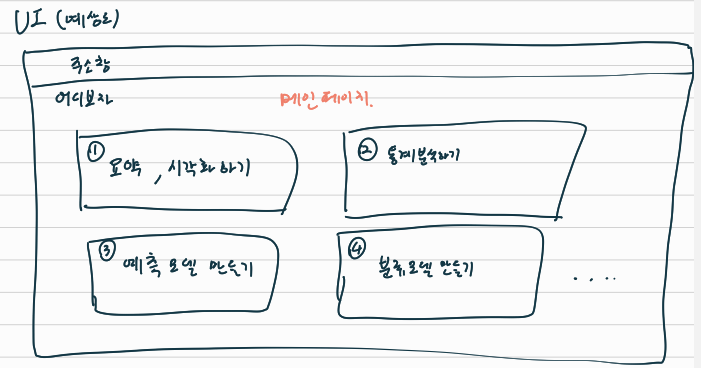 UI (예상도)
주소창
어디보자
메인페이지.
① 요약, 시각화하기
② 통계분석하기
③ 예측 모델 만들기
④ 분류모델 만들기
....